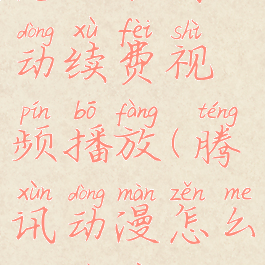 dòng xù fèi shì
动续费视
pín bō fàng téng
频播放(腾
xùn dòng màn zěn me
讯动漫怎么